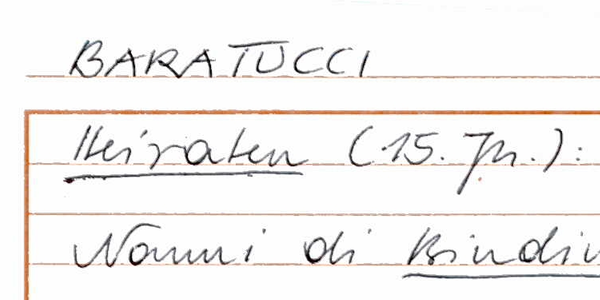 BARATUCCI
Heiraten (15. Jh.):
Nanni di